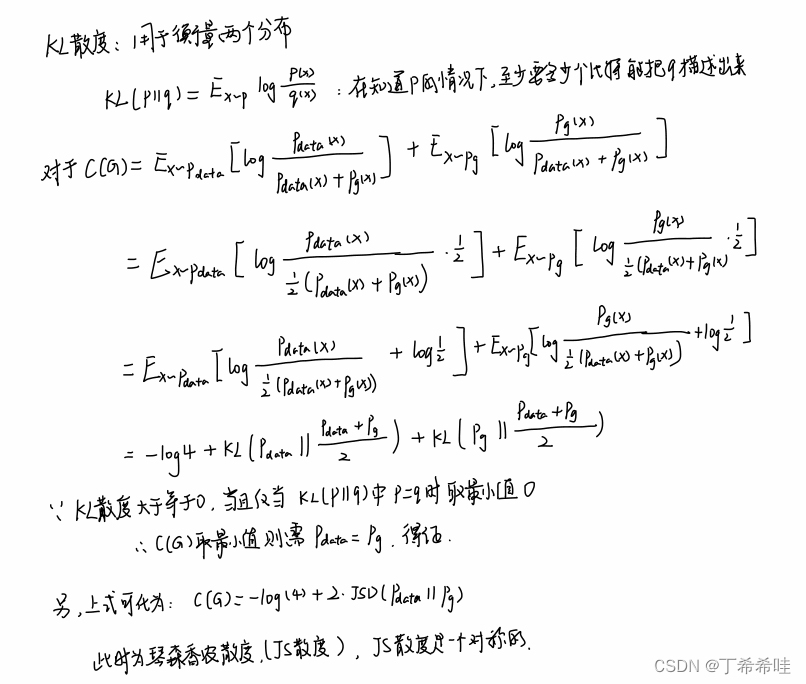 KL散度：用于衡量两个分布
KL(P||q) = E_{x~p} log \frac{p(x)}{q(x)} ：在知道P的情况下，至少要多少个比特能把q描述出来
对于 C(G) = E_{x~P_{data}} [log \frac{P_{data}(x)}{P_{data}(x) + P_g(x)}] + E_{x~P_g} [log \frac{P_g(x)}{P_{data}(x) + P_g(x)}]
= E_{x~P_{data}} [log \frac{P_{data}(x)}{\frac{1}{2}(P_{data}(x) + P_g(x))} · \frac{1}{2}] + E_{x~P_g} [log \frac{P_g(x)}{\frac{1}{2}(P_{data}(x) + P_g(x)} · \frac{1}{2}]
= E_{x~P_{data}} [log \frac{P_{data}(x)}{\frac{1}{2}(P_{data}(x) + P_g(x))} + log \frac{1}{2}] + E_{x~P_g} [log \frac{P_g(x)}{\frac{1}{2}(P_{data}(x) + P_g(x))} + log \frac{1}{2}]
= -log4 + KL(P_{data} || \frac{P_{data} + P_g}{2}) + KL(P_g || \frac{P_{data} + P_g}{2})
∵ KL散度大于等于0，当且仅当 KL(P||q)中 P=q时取最小值0
∴ C(G)取最小值则需 P_{data} = P_g . 得证.
另，上式可化为：C(G) = -log(4) + 2·JSD(P_{data} || P_g)
此时为琴森香农散度，(JS散度)，JS散度是一个对称的.
CSDN @丁希希哇